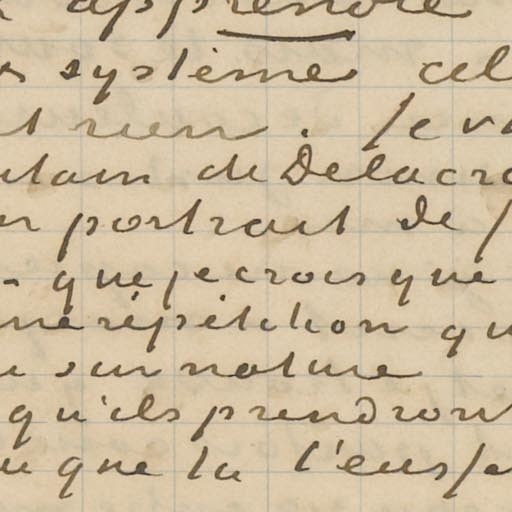 apprendre
système cel
rien. Je va
de Delacro
portrait de
que je crois que
répétition qu
sur nature
qu'ils prendron
que tu l'eus fa